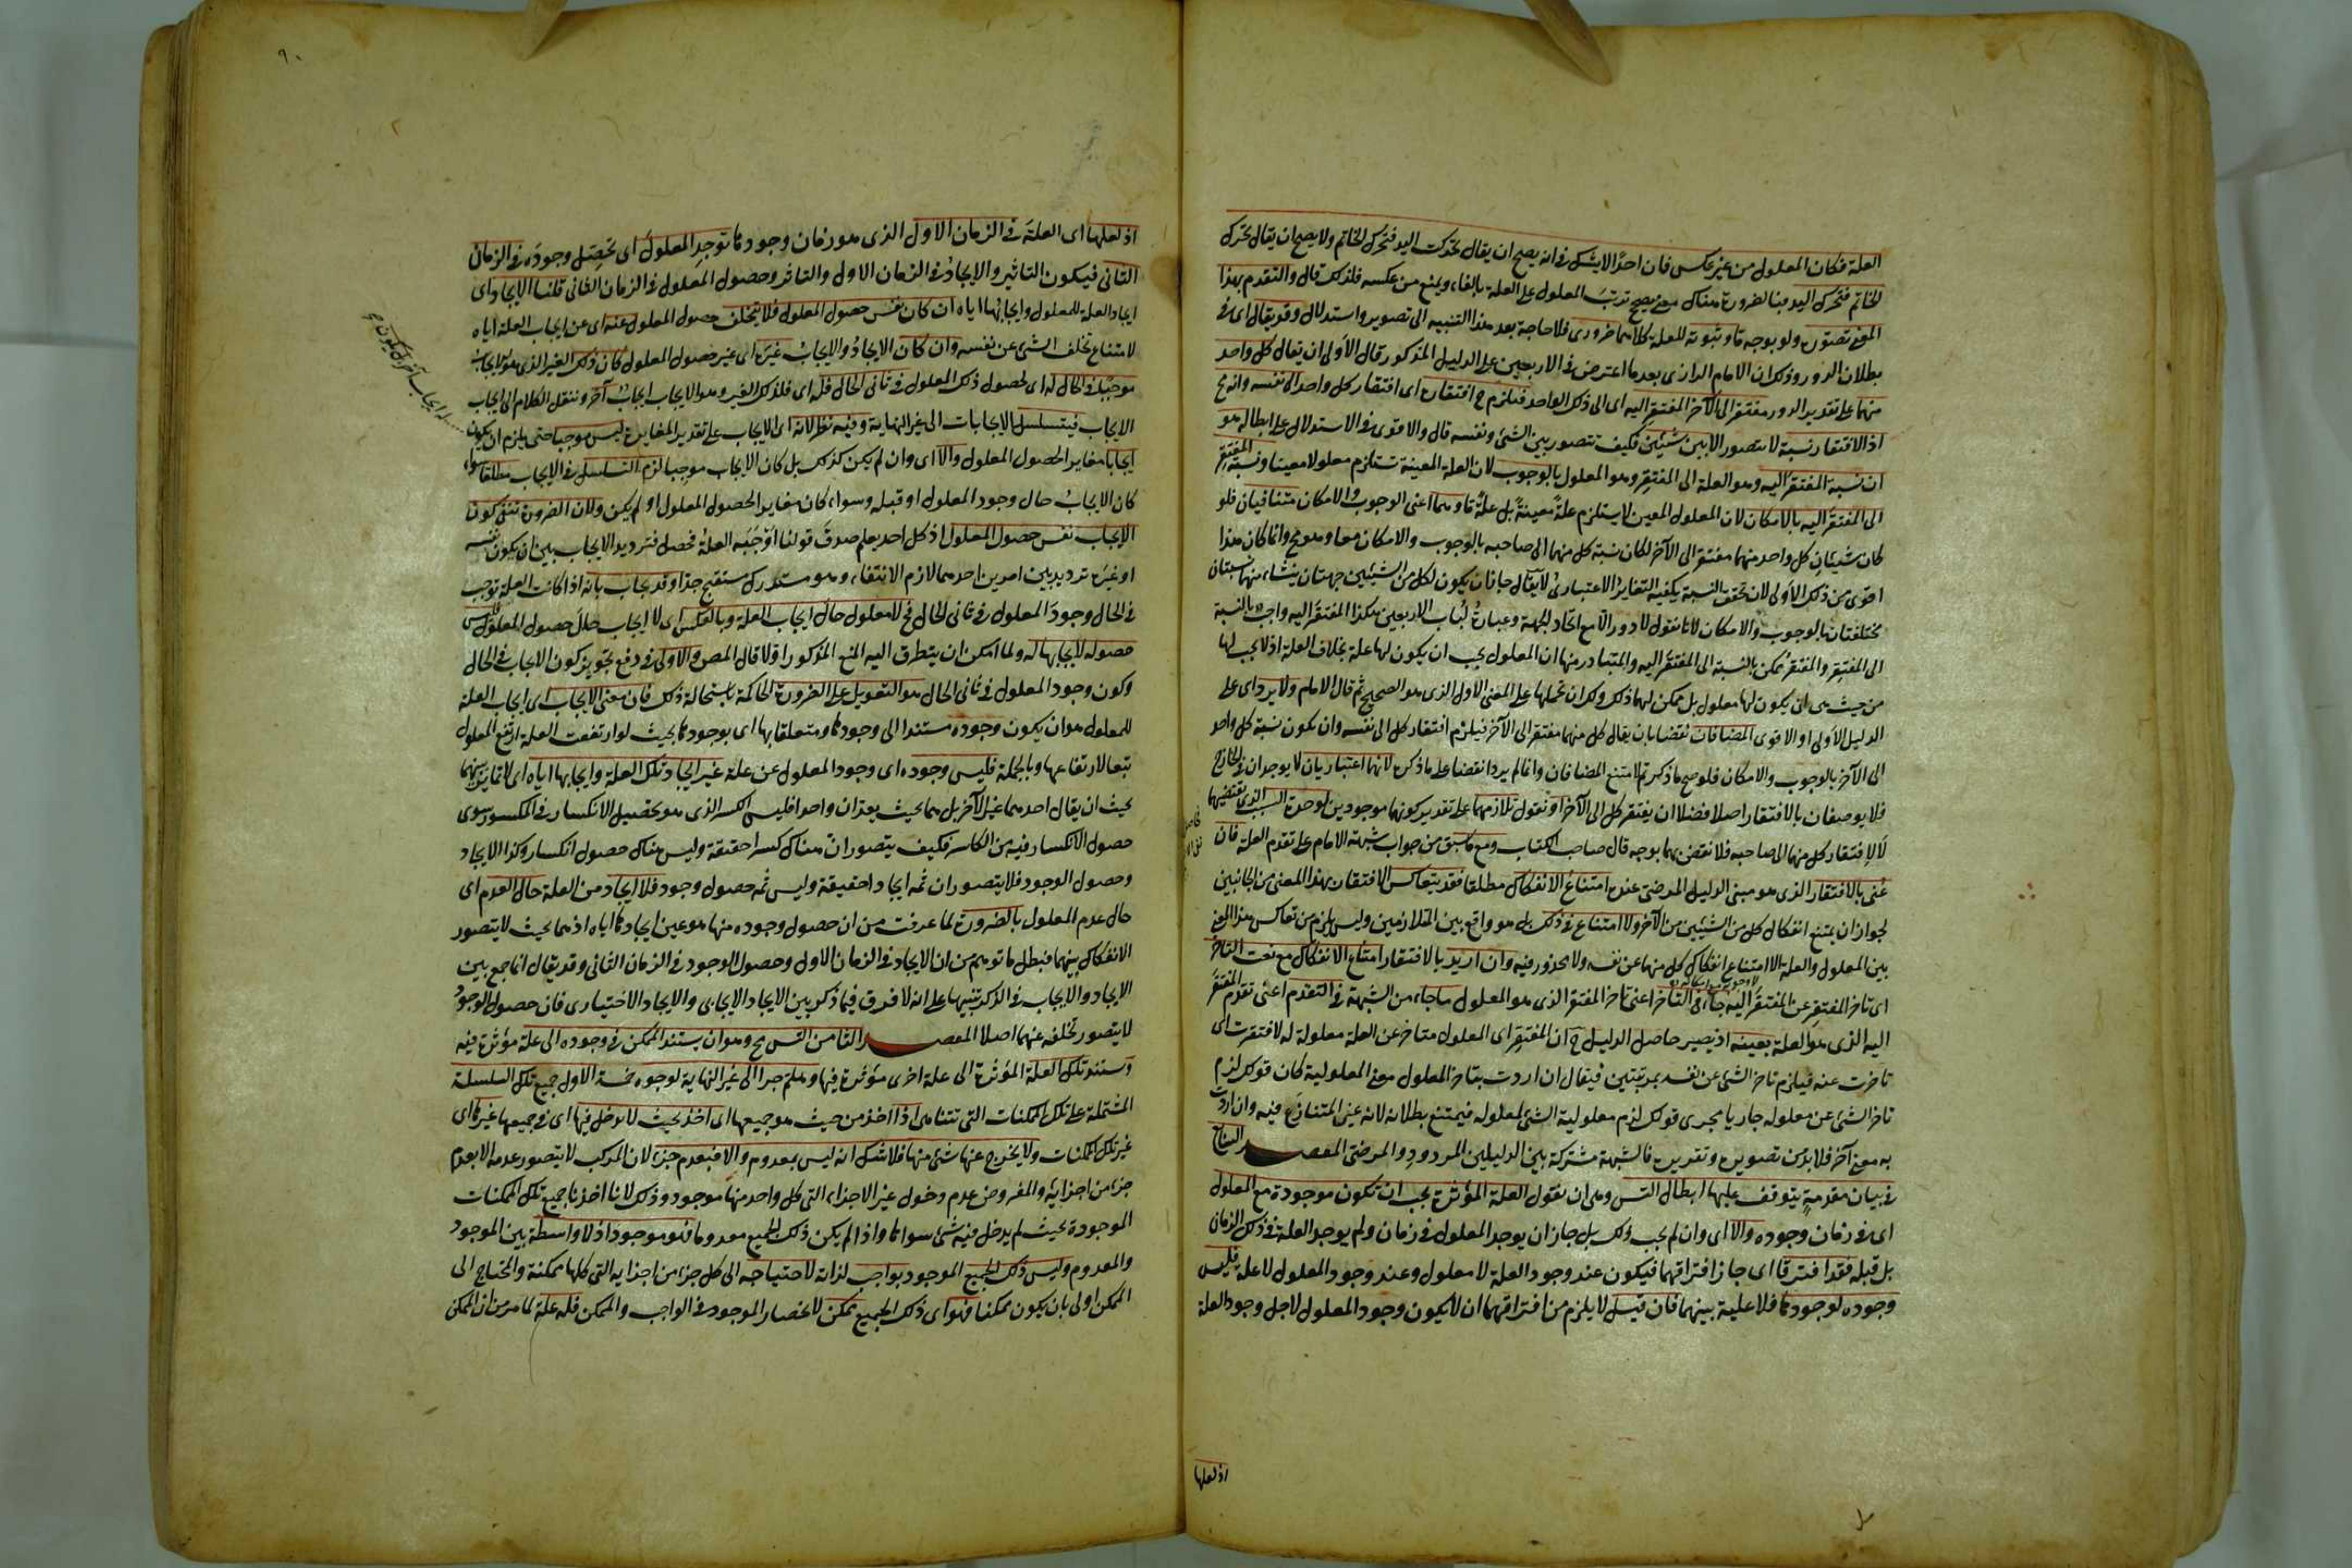 العلة فكان المعلول من غير عكس فان احدا لا يشك في انه يصح ان يقال تحركت اليد فتحرك الخاتم ولا يصح ان يقال تحرك
الخاتم فتحرك اليد فبالضرورة هناك معنى يصحح ترتب المعلول على العلة بالفاء ويمنع من عكسه فلذلك قال والتقدم بهذا
المعنى تصوره ولو بوجه ما وثبوته للعلة كلاهما ضروري فلا حاجة بعد هذا التنبيه الى تصوير واستدلال وقد يقال اى في
بطلان الدور وذلك ان الامام الرازى بعد ما اعترض في الاربعين على الدليل المذكور قال الاولى ان يقال كل واحد
منهما على تقدير الدور مفتقر الى الآخر المفتقر اليه اى الى ذلك الواحد فيلزم ح افتقاره اى افتقار كل واحد الى نفسه وانه مح
اذ الافتقار نسبة لا تتصور الا بين شيئين فكيف تتصور بين الشئ ونفسه قال والاقوى في الاستدلال على ابطاله هو
ان نسبة المفتقر اليه وهو العلة الى المفتقر وهو المعلول بالوجوب لان العلة المعينة تستلزم معلولا معينا ونسبة المفتقر
الى المفتقر اليه بالامكان لان المعلول المعين لا يستلزم علة معينة بل علة ما وهما اعنى الوجوب والامكان متنافيان فلو
كان شيئان كل واحد منهما مفتقر الى الآخر لكان نسبة كل منهما الى صاحبه بالوجوب والامكان معا وهو مح وانما كان هذا
اقوى من ذلك الاولى لان تحقق النسبة يكفيه التغاير الاعتبارى لا يقال جاز ان يكون لكل من الشيئين جهتان ينشاء منهما نسبتان
مختلفتان بالوجوب والامكان لانا نقول لا دور الا مع اتحاد الجهة وعبارة لباب الاربعين هكذا المفتقر اليه واجب بالنسبة
الى المفتقر والمفتقر ممكن بالنسبة الى المفتقر اليه والمتبادر منها ان المعلول يجب ان يكون لها علة بخلاف العلة اذ لا يجب لها
من حيث هى ان يكون لها معلول بل ممكن لها ذلك ولك ان تحملها على المعنى الاول الذى هو الصحيح ثم قال الامام ولا يرد اى على
الدليل الاولى او الاقوى المضافان نقضا بان يقال كل منهما مفتقر الى الآخر فيلزم افتقار كل الى نفسه وان يكون نسبة كل واحد
الى الآخر بالوجوب والامكان فلو صح ما ذكرتم لامتنع المضافان وانما لم يردا نقضا على ما ذكره لانهما اعتباريان لا يوجدان في الخارج
فلا يوصفان بالافتقار اصلا فضلا ان يفتقر كل الى الآخر او نقول تلازمهما على تقدير كونهما موجودين لوحدة السبب الذى يقتضيهما
لا لافتقار كل منهما الى صاحبه فلا نقض بهما بوجه قال صاحب الكتاب ومع ما سبق من جواب شبهة الامام على تقدم العلة فان
عنى بالافتقار الذى هو مبنى الدليل المرضى عنده امتناع الانفكاك مطلقا فقد يتعاكس الافتقار بهذا المعنى من الجانبين
لجواز ان يمتنع انفكاك كل من الشيئين من الآخر ولا امتناع في ذلك بل هو واقع بين المتلازمين وليس يلزم من تعاكس هذا المعنى
بين المعلول والعلة الا امتناع انفكاك كل منهما عن نفسه ولا محذور فيه وان اريد بالافتقار امتناع الانفكاك مع نعت التأخر
اى تاخر المفتقر عن المفتقر اليه جاء في التأخر اعنى تاخر المفتقر الذى هو المعلول ما جاء من الشبهة في التقدم اعنى تقدم المفتقر
اليه الذى هو العلة بعينه اذ يصير حاصل الدليل ح ان المفتقر اى المعلول متاخر عن العلة معلولة له لافتقرت اى
تاخرت عنه فيلزم تاخر الشئ عن نفسه بمرتبتين فيقال ان اردت بتاخر المعلول معنى المعلولية كان قولك لزم
تاخر الشئ عن معلوله جاريا مجرى قولك لزم معلولية الشئ لمعلوله فيمتنع بطلانه لانه عين المتنازع فيه وان اردت
به معنى آخر فلابد من تصويره وتقريره فالشبهة مشتركة بين الدليلين المردود والمرضى المقصد السابع
في بيان مقدمة يتوقف عليها ابطال التس وهى ان نقول العلة المؤثرة يجب ان تكون موجودة مع المعلول
اى في زمان وجوده والا اى وان لم يجب ذلك بل جاز ان يوجد المعلول في زمان ولم يوجد العلة في ذلك الزمان
بل قبله فقد افترقا اى جاز افتراقهما فيكون عند وجود العلة لا معلول وعند وجود المعلول لا علة فليس
وجوده لوجودها فلا علية بينهما فان قيل لا يلزم من افتراقهما ان لا يكون وجود المعلول لاجل وجود العلة
اذ لعلها
٩٠
اذ لعلها اى العلة في الزمان الاول الذى هو زمان وجودها توجد المعلول اى تحصل وجوده في الزمان
الثانى فيكون التاثير والايجاد في الزمان الاول والتاثر وحصول المعلول في الزمان الثانى قلنا الايجاد اى
ايجاد العلة للمعلول وايجابها اياه ان كان نفس حصول المعلول فلا يتخلف حصول المعلول عنه اى عن ايجاب العلة اياه
لامتناع تخلف الشئ عن نفسه وان كان الايجاد والايجاب غيره اى غير حصول المعلول كان ذلك الغير الذى هو الايجاب
موجبا في الحال له اى لحصول ذلك المعلول في ثانى الحال فله اى فلذلك الغير وهو الايجاب ايجاب آخر وننقل الكلام الى ايجاب
الايجاب فيتسلسل الايجابات الى غير النهاية وفيه نظر لانه اى الايجاب على تقدير المغايرة ليس موجبا حتى يلزم ان يكون
له ايجاب آخر بل يكون
ايجابا مغايرا لحصول المعلول والا اى وان لم يكن كذلك بل كان الايجاب موجبا لزم التسلسل في الايجاب مطلقا سواء
كان الايجاب حال وجود المعلول او قبله وسواء كان مغايرا لحصول المعلول او لم يكن ولان الضرورة تنفى كون
الايجاب نفس حصول المعلول اذ كل احد يعلم صدق قولنا اوجبه العلة فحصل فترديد الايجاب بين ان يكون نفسه
او غيره ترديد بين امرين احدهما لازم الانتفاء وهو مستدرك مستقبح جدا وقد يجاب بانه اذا كانت العلة توجب
في الحال وجود المعلول في ثانى الحال فح لا معلول حال ايجاب العلة وبالعكس اى لا ايجاب حال حصول المعلول فليس
حصوله لايجابها له ولما امكن ان يتطرق اليه المنع المذكور اولا قال المص والاولى في دفع تجويز كون الايجاب في الحال
وكون وجود المعلول في ثانى الحال هو التعويل على الضرورة الحاكمة باستحالة ذلك فان معنى الايجاب اى ايجاب العلة
للمعلول هو ان يكون وجوده مستندا الى وجودها ومتعلقا بها اى بوجودها بحيث لو ارتفعت العلة ارتفع المعلول
تبعا لارتفاعها وبالجملة فليس وجوده اى وجود المعلول عن علة غير ايجاد تلك العلة وايجابها اياه اى لا تمايز بينهما
بحيث ان يقال احدهما غير الآخر بل هما بحيث يعدان واحدا فليس الكسر الذى هو تحصيل الانكسار في المكسور سوى
حصول الانكسار فيه من الكاسر فكيف يتصور ان هناك كسرا حقيقة وليس هناك حصول انكسار وكذا الايجاد
وحصول الوجود فلا يتصور ان ثمه ايجادا حقيقة وليس ثمه حصول وجود فلا ايجاد من العلة حال العدم اى
حال عدم المعلول بالضرورة لما عرفت من ان حصول وجوده منها هو عين ايجادها اياه اذ هما بحيث لا يتصور
الانفكاك بينهما فبطل ما توهم من ان الايجاد في الزمان الاول وحصول الوجود في الزمان الثانى وقد يقال انما جمع بين
الايجاد والايجاب في الذكر تنبيها على انه لا فرق فيما ذكر بين الايجاد الايجابى والايجاد الاختيارى فان حصول الوجود
لا يتصور تخلفه عنهما اصلا المقصد الثامن التس مح وهو ان يستند الممكن في وجوده الى علة مؤثرة فيه
وتستند تلك العلة المؤثرة الى علة اخرى مؤثرة فيها وهلم جرا الى غير النهاية لوجوه خمسة الاول جميع تلك السلسلة
المشتملة على تلك الممكنات التى لا تتناهى اذا اخذ من حيث هو جميعها اى اخذ بحيث لا يدخل فيها اى في جميعها غيرها اى
غير تلك الممكنات ولا يخرج عنها شئ منها فلا شك انه ليس بمعدوم والا فبعدم جزء لان المركب لا يتصور عدمه الا بعدم
جزء من اجزائه والمفروض عدم دخول غير الاجزاء التى كل واحد منها موجود وذلك لانا اخذنا جميع تلك الممكنات
الموجودة بحيث لم يدخل فيه شئ سواها واذا لم يكن ذلك الجميع معدوما فهو موجود اذ لا واسطة بين الموجود
والمعدوم وليس ذلك الجميع الموجود بواجب لذاته لاحتياجه الى كل جزء من اجزائه التى كلها ممكنة والمحتاج الى
الممكن اولى بان يكون ممكنا فهو اى ذلك الجميع ممكن لانحصار الموجود في الواجب والممكن فله علة لما مر من ان الممكن